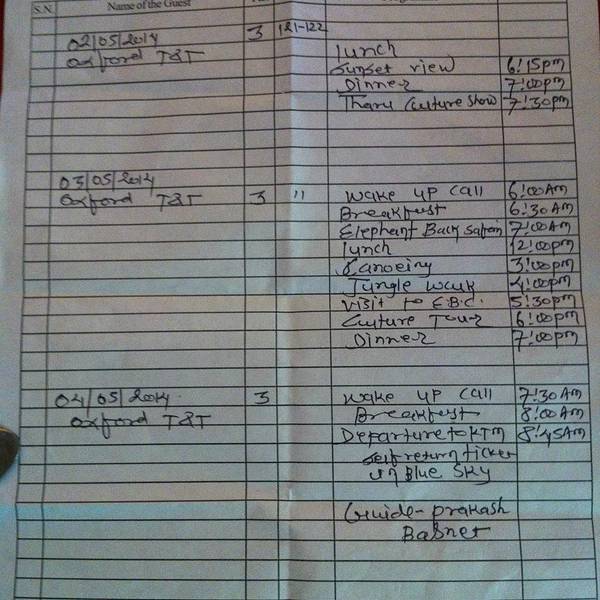 S.N. Name of the Guest
02/05/2014 3 121-122
Oxford T&T Lunch
Sunset view 6:15pm
Dinner 7:00pm
Tharu Culture Show 7:30pm
03/05/2014
Oxford T&T 3 " Wake up call 6:00Am
Breakfast 6:30Am
Elephant Back Safari 7:00Am
Lunch 12:00pm
Canoeing 3:00pm
Jungle walk 4:00pm
Visit to E.B.C. 5:30pm
Culture Tour 6:00pm
Dinner 7:00pm
04/05/2014 3 Wake up call 7:30Am
Oxford T&T Breakfast 8:00Am
Departure to KTM 8:45Am
Self return ticket
in Blue Sky
Guide- prakash
Basnet